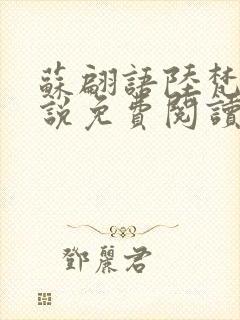 蘇翩語陸梵
說免費閱讀
鄧麗君